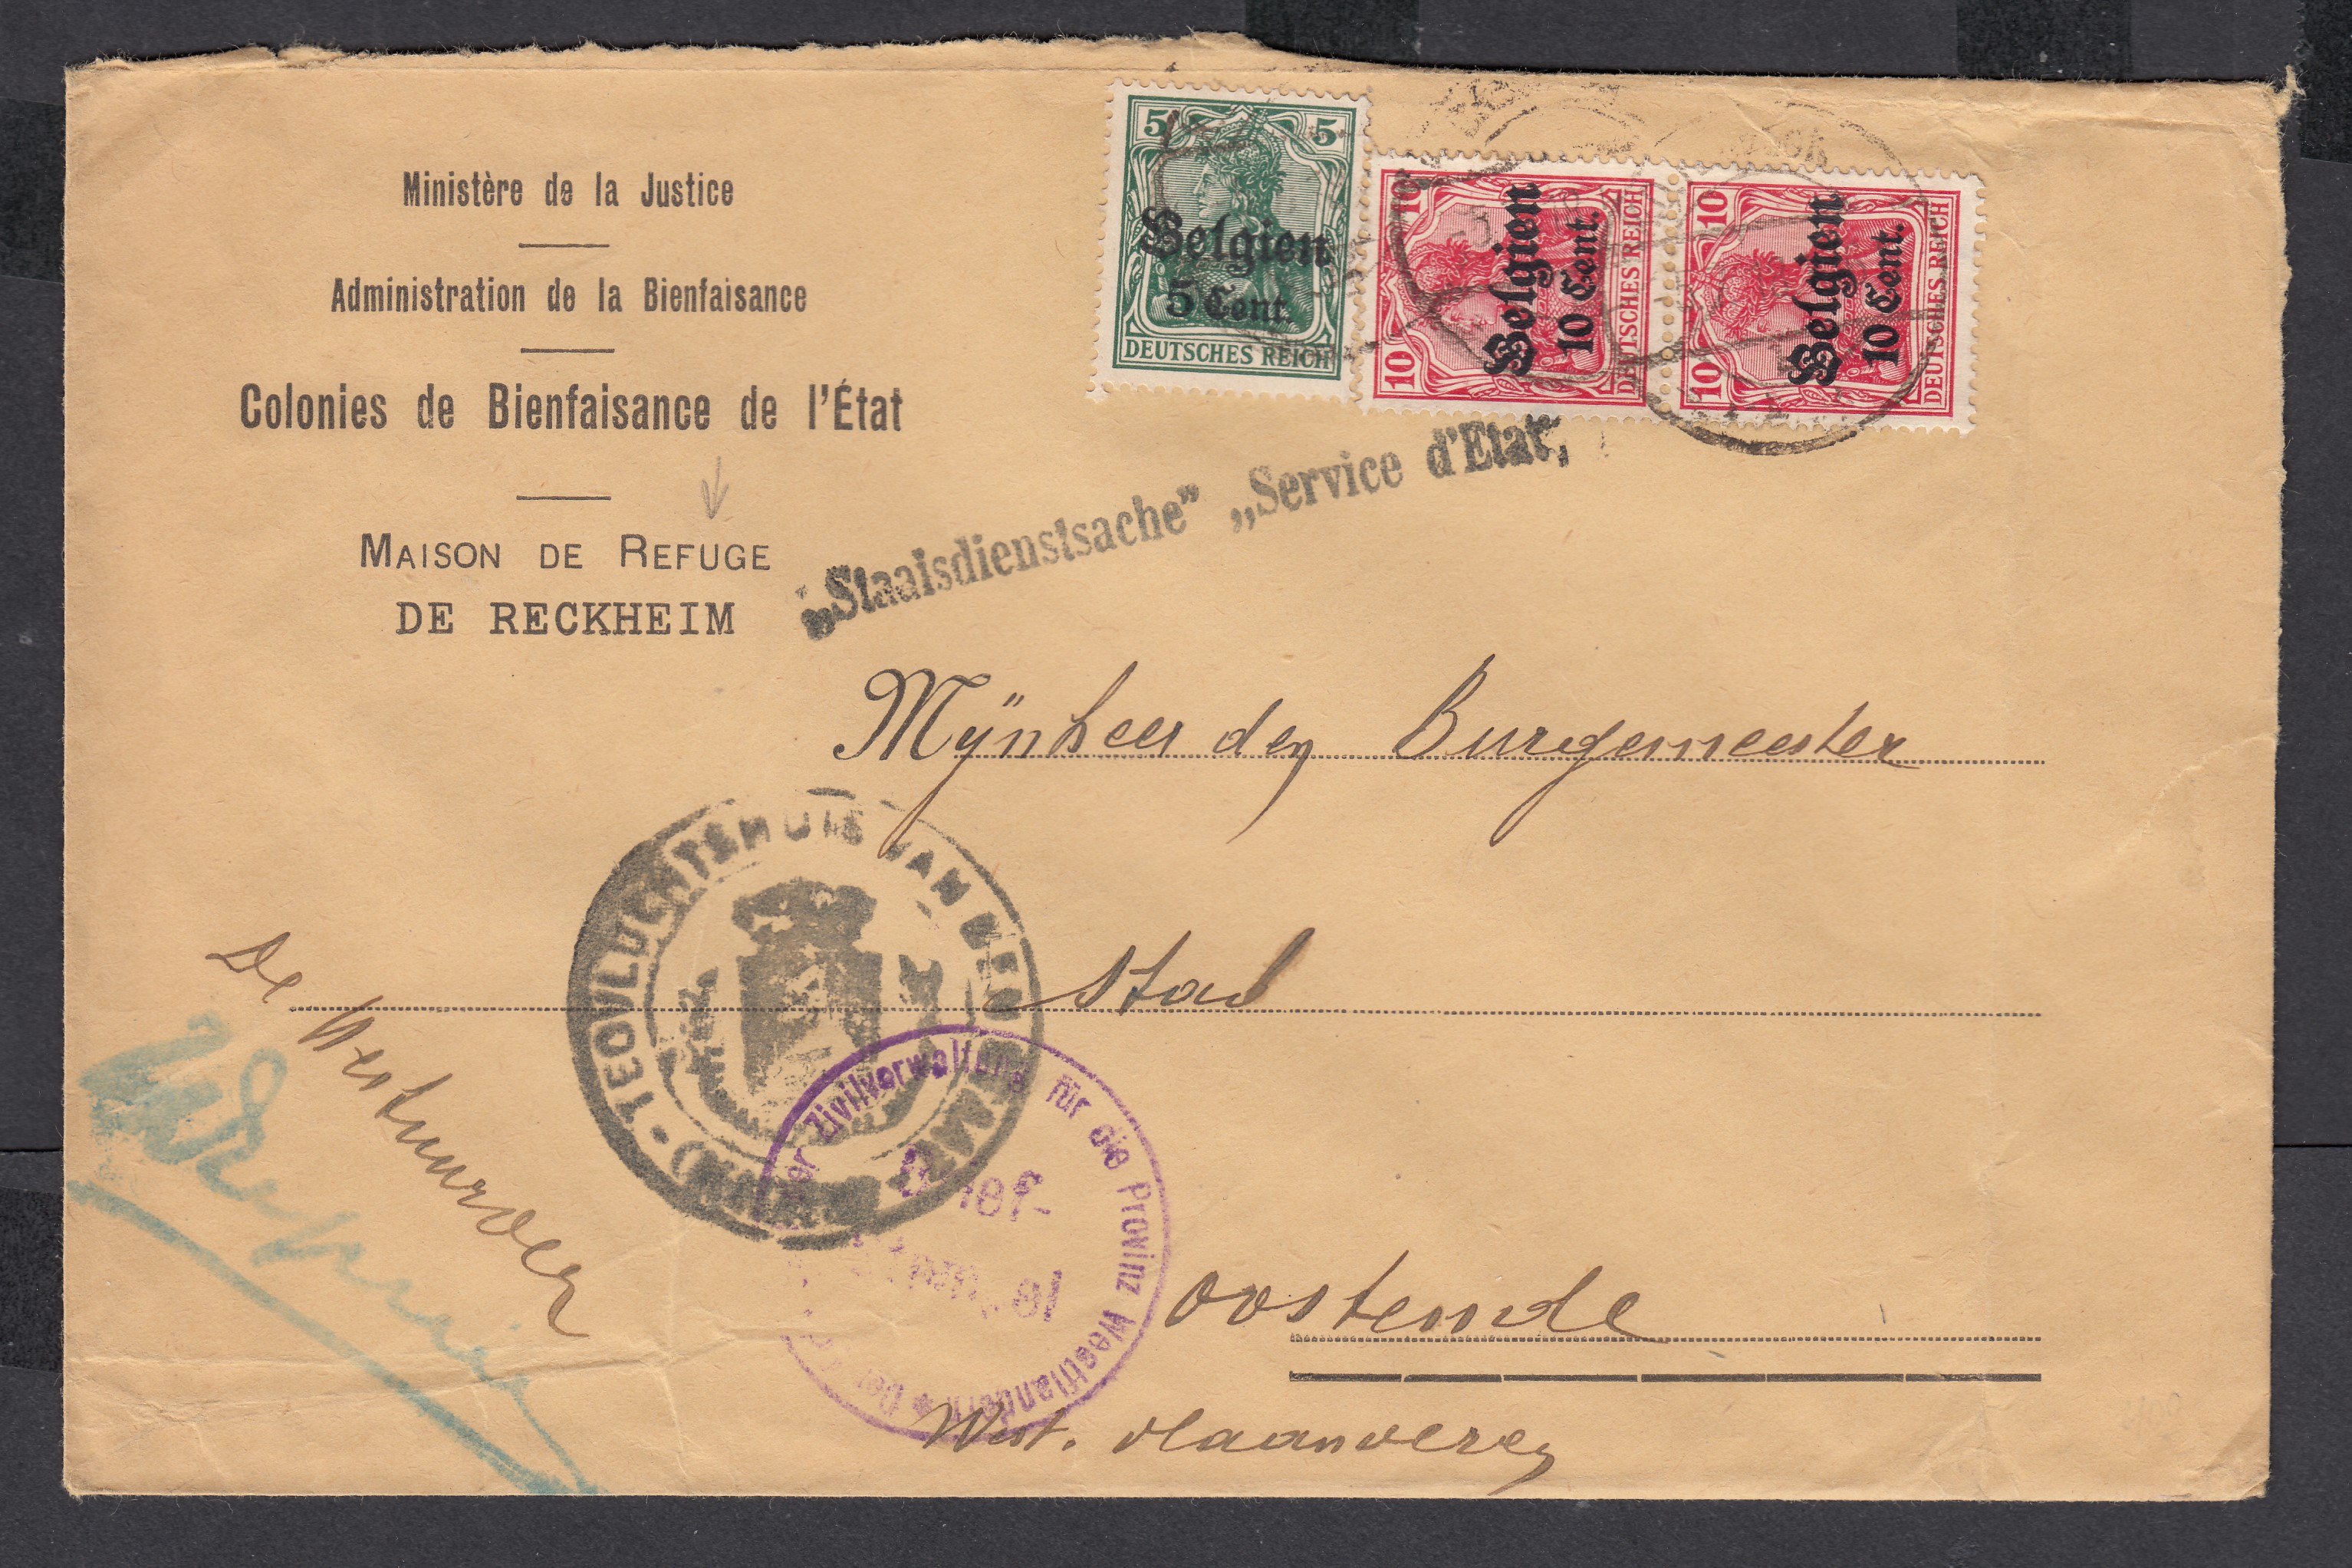 Ministère de la Justice
Administration de la Bienfaisance
Colonies de Bienfaisance de l'État
MAISON DE REFUGE
DE RECKHEIM
5 5
Belgien
5 Cent.
DEUTSCHES REICH
10 10
Belgien
10 Cent.
DEUTSCHES REICH
10 10
Belgien
10 Cent.
DEUTSCHES REICH
„Staatsdienstsache" „Service d'Etat,
Mÿnheer den Burgemeester
Stad
Oostende
West. Vlaanderen
De Bestuurder
TOEVLUCHTEHUIS VAN
der Zivilverwaltung für die Provinz Westflandern *
Brief-